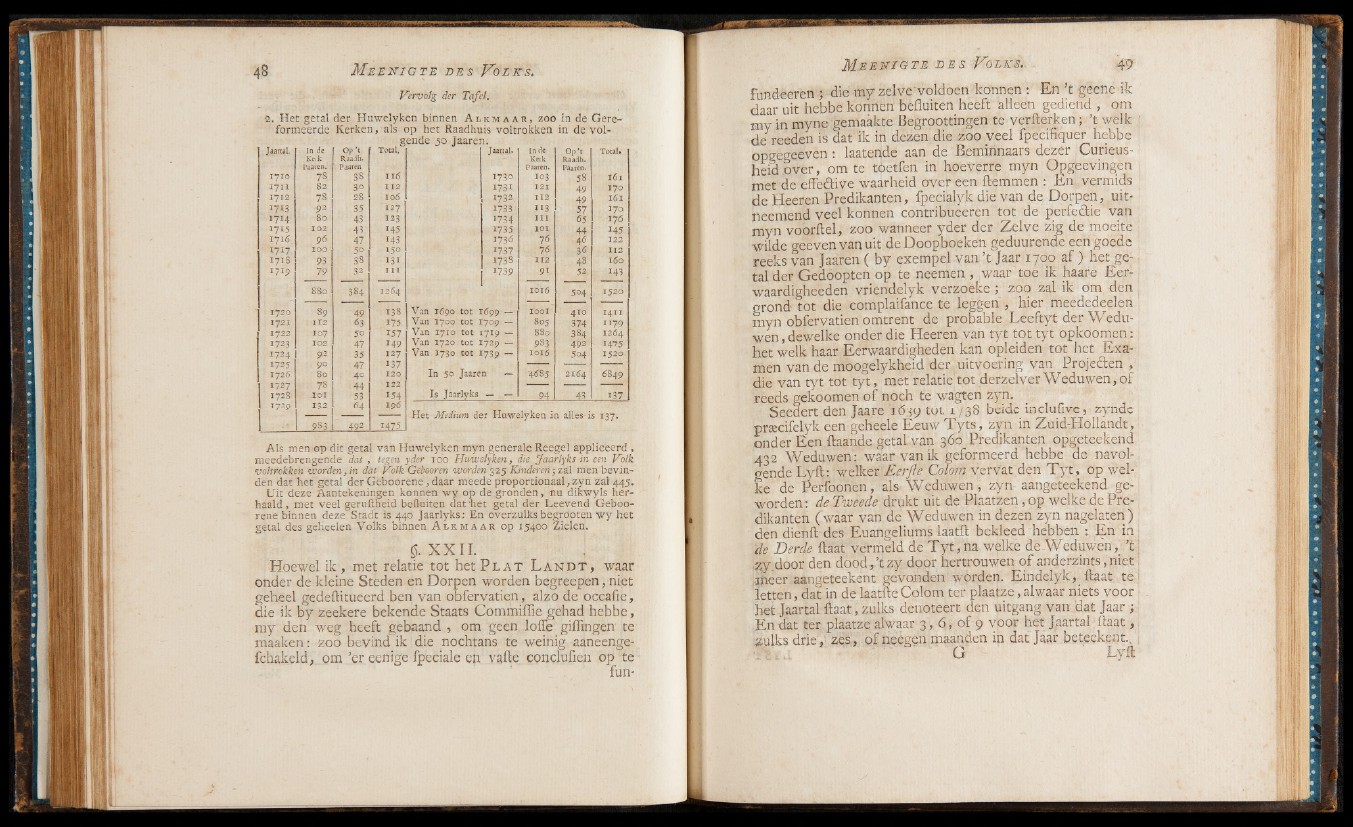 48 MEENIGTE DES VOLKS.
Vervolg der Tafel.
2. Het getal der Huwelyken binnen ALKMAAR, zoo in de Gere-
formeerde Kerken, als op het Raadhuis voltrokken in de vol-
gende 50 Jaaren.
Jaartal. In de Kerk Paaren. Op 't Raadh. Paaren Total.
1710 78 38 116
1711 82 30 112
1712 78 28 106
1713 92 35 127
1714 80 43 123
1715 102 43 145
1716 96 47 143
1717 100 50 150
1718 93 38 131
1719 79 32 111
880 384 1264
1720 89 49 138
1721 112 63 175
1722 107 50 157
1723 102 47 149
1724 92 35 127
1725 90 47 137
1726 80 40 120
1727 78 44 122
1728 101 53 154
1729 132 64 196
983 492 1475
Jaartal. In de Kerk Paaren. Op 't Raadh. Paaren. Total.
1730 103 58 161
1731 121 49 170
1732 112 49 161
1733 113 57 170
1734 111 65 176
1735 101 44 145
1736 76 46 122
1737 76 36 112
1738 112 48 160
1739 91 52 143
1016 504 1520
Van 1690 tot 1699 — 1001 410 1411
Van 1700 tot 1709 — 805 374 1179
Van 1710 tot 1719 — 880 384 1264
Van 1720 tot 1729 — 983 492 1475
Van 1730 tot 1739 — 1016 504 1520
In 50 Jaaren — 4685 2164 6849
Is Jaarlyks — — 94 43 137
Het Medium der Huwelyken in alles is 137.
Als men op dit getal van Huwelyken myn generale Reegel appliceerd,
meedebrengende dat, tegen yder 100 Huwelyken, die Jaarlyks in een Volk
voltrokken worden, in dat Volk Gebooren worden 325 Kinderen; zal men bevin-
den dat het getal der Geboorene, daar meede proportionaal, zyn zal 445.
Uit deze Aantekeningen konnen wy op de gronden, nu dikwyls her-
haald, met veel geruſtheid beſluiten dat het getal der Leevend Geboo-
rene binnen deze Stadt is 440 Jaarlyks: En overzulks begrooten wy het
getal des geheelen Volks binnen ALKMAAR op 15400 Zielen.
§. XXII.
Hoewel ik, met relatie tot het PLAT LANDT, waar
onder de kleine Steden en Dorpen worden begreepen, niet
geheel gedeſtitueerd ben van obſervatien, alzo de occaſie,
die ik by zeekere bekende Staats Commiſſie gehad hebbe,
my den weg heeft gebaand, om geen loſſe giſſingen te
maaken: zoo bevind ik die nochtans te weinig aaneenge-
ſchakeld, om 'er eenige ſpeciale en vaſte concluſien op te
fun-
MEENIGTE DES VOLKS. 49
fundeeren; die my zelve voldoen konnen: En 't geene ik
daar uit hebbe konnen beſluiten heeft alleen gediend, om
my in myne gemaakte Begroottingen te verſterken; 't welk
de reeden is dat ik in dezen die zoo veel ſpecifiquer hebbe
opgegeeven: laatende aan de Beminnaars dezer Curieus-
heid over, om te toetſen in hoeverre myn Opgeevingen
met de effective waarheid over een ſtemmen: En vermids
de Heeren Predikanten, ſpecialyk die van de Dorpen, uit-
neemend veel konnen contribueeren tot de perfectie van
myn voorſtel, zoo wanneer yder der Zelve zig de moeite
wilde geeven van uit de Doopboeken geduurende een goede
reeks van Jaaren (by exempel van 't Jaar 1700 af) het ge-
tal der Gedoopten op te neemen, waar toe ik haare Eer-
waardigheeden vriendelyk verzoeke; zoo zal ik om den
grond tot die complaiſance te leggen, hier meededeelen
myn obſervatien omtrent de probable Leeftyt der Wedu-
wen, dewelke onder die Heeren van tyt tot tyt opkoomen:
het welk haar Eerwaardigheden kan opleiden tot het Exa-
men van de moogelykheid der uitvoering van Projecten,
die van tyt tot tyt, met relatie tot derzelver Weduwen, of
reeds gekoomen of noch te wagten zyn.
Seedert den Jaare 1639 tot 1738 beide incluſive, zynde
præciſelyk een geheele Eeuw Tyts, zyn in Zuid-Hollandt,
onder Een ſtaande getal van 360 Predikanten opgeteekend
432 Weduwen: waar van ik geformeerd hebbe de navol-
gende Lyſt: welker Eerſte Colom vervat den Tyt, op wel-
ke de Perſoonen, als Weduwen, zyn aangeteekend ge-
worden: de Tweede drukt uit de Plaatzen, op welke de Pre-
dikanten (waar van de Weduwen in dezen zyn nagelaten)
den dienſt des Euangeliums laatſt bekleed hebben: En in
de Derde ſtaat vermeld de Tyt, na welke de Weduwen, 't
zy door den dood, 't zy door hertrouwen of anderzints, niet
meer aangeteekent gevonden worden. Eindelyk, ſtaat te
letten, dat in de laatſte Colom ter plaatze, alwaar niets voor
het Jaartal ſtaat, zulks denoteert den uitgang van dat Jaar;
En dat ter plaatze alwaar 3, 6, of 9 voor het Jaartal ſtaat,
zulks drie, zes, of neegen maanden in dat Jaar beteekent.
G Lyſt